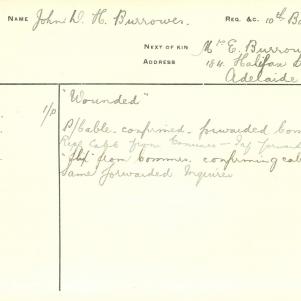 NAME John W. H. Burrowes. REG. &C. 10th Ba
NEXT OF KIN Mrs E. Burrow
ADDRESS 184 Halifax S
Adelaide
1/P "Wounded"
P/Cable confirmed forwarded Com
Repl Cable from Commrs
from Commrs. confirming cab
Same forwarded Inquirer